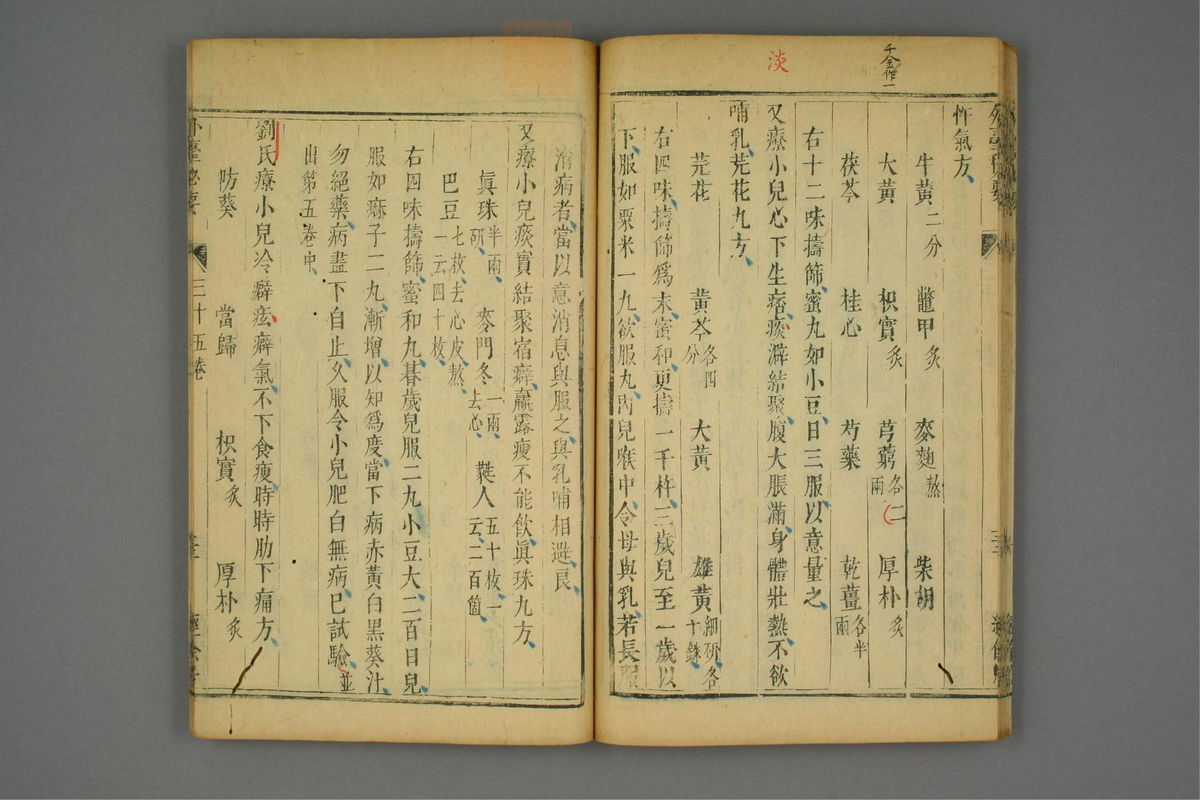 千金作一
淡
外臺秘要
忤氣方
牛黃二分 鼈甲炙 麥麴熬 柴胡
大黃 枳實炙 芎藭各二兩 厚朴炙
茯苓 桂心 芍藥 乾薑各半兩
右十二味擣篩蜜丸如小豆日三服以意量之
又療小兒心下生痞痰澼結聚腹大脹滿身體壯熱不欲
哺乳芫花丸方
芫花 黃芩各四分 大黃 雄黃細研各十銖
右四味擣篩爲末蜜和更擣一千杵三歲兒至一歲以
下服如粟米一丸欲服丸內兒喉中令母與乳若長服
消病者當以意消息與服之與乳哺相避良
又療小兒痰實結聚宿癖羸露瘦不能飲眞珠丸方
眞珠半兩研 麥門冬一兩去心 蕤人五十枚一云二百箇
巴豆七枚去心皮熬一云四十枚
右四味擣篩蜜和丸朞歲兒服二丸小豆大二百日兒
服如麻子二丸漸增以知爲度當下病赤黃白黑葵汁
勿絕藥病盡下自止久服令小兒肥白無病已試驗並
出第五卷中
劉氏療小兒冷癖痃癖氣不下食瘦時時肋下痛方
防葵 當歸 枳實炙 厚朴炙
外臺秘要 三十五卷